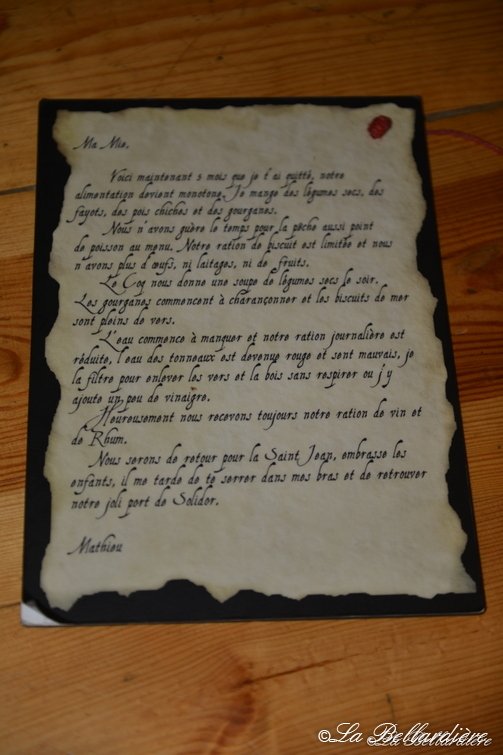 Ma Mie,
Voici maintenant 5 mois que je t'ai quitté, notre
alimentation devient monotone. Je mange des légumes secs, des
fayots, des pois chiches et des gourganes.
Nous n'avons guère le temps pour la pêche aussi point
de poisson au menu. Notre ration de biscuit est limitée et nous
n'avons plus d'œufs, ni laitages, ni de fruits.
Le Coq nous donne une soupe de légumes secs le soir.
Les gourganes commencent à charançonner et les biscuits de mer
sont pleins de vers.
L'eau commence à manquer et notre ration journalière est
réduite, l'eau des tonneaux est devenue rouge et sent mauvais, je
la filtre pour enlever les vers et la bois sans respirer ou j'y
ajoute un peu de vinaigre.
Heureusement nous recevons toujours notre ration de vin et
de Rhum.
Nous serons de retour pour la Saint Jean, embrasse les
enfants, il me tarde de te serrer dans mes bras et de retrouver
notre joli port de Solidor.
Mathieu
©La Bellardière
La Bellardière